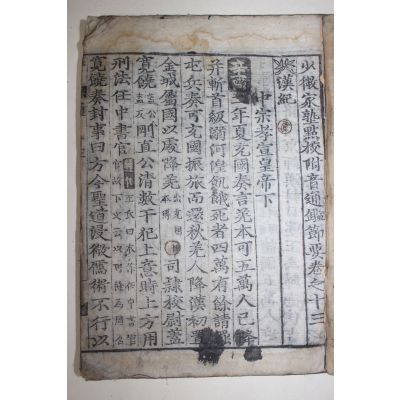 少微家塾點校附音通鑑節要卷之十三
漢紀
中宗孝宣皇帝下
二年夏充國奏言羌本可五萬人已降
并斬首級溺河湟飢餓死者四萬有餘請罷
屯兵奏可充國振旅而還秋羌人降漢初置
金城屬國以處降羌 司隷校尉蓋
寬饒 剛直公清數干犯上意時上方用
刑法任中書官
寬饒奏封事曰方今聖道浸微儒術不行以